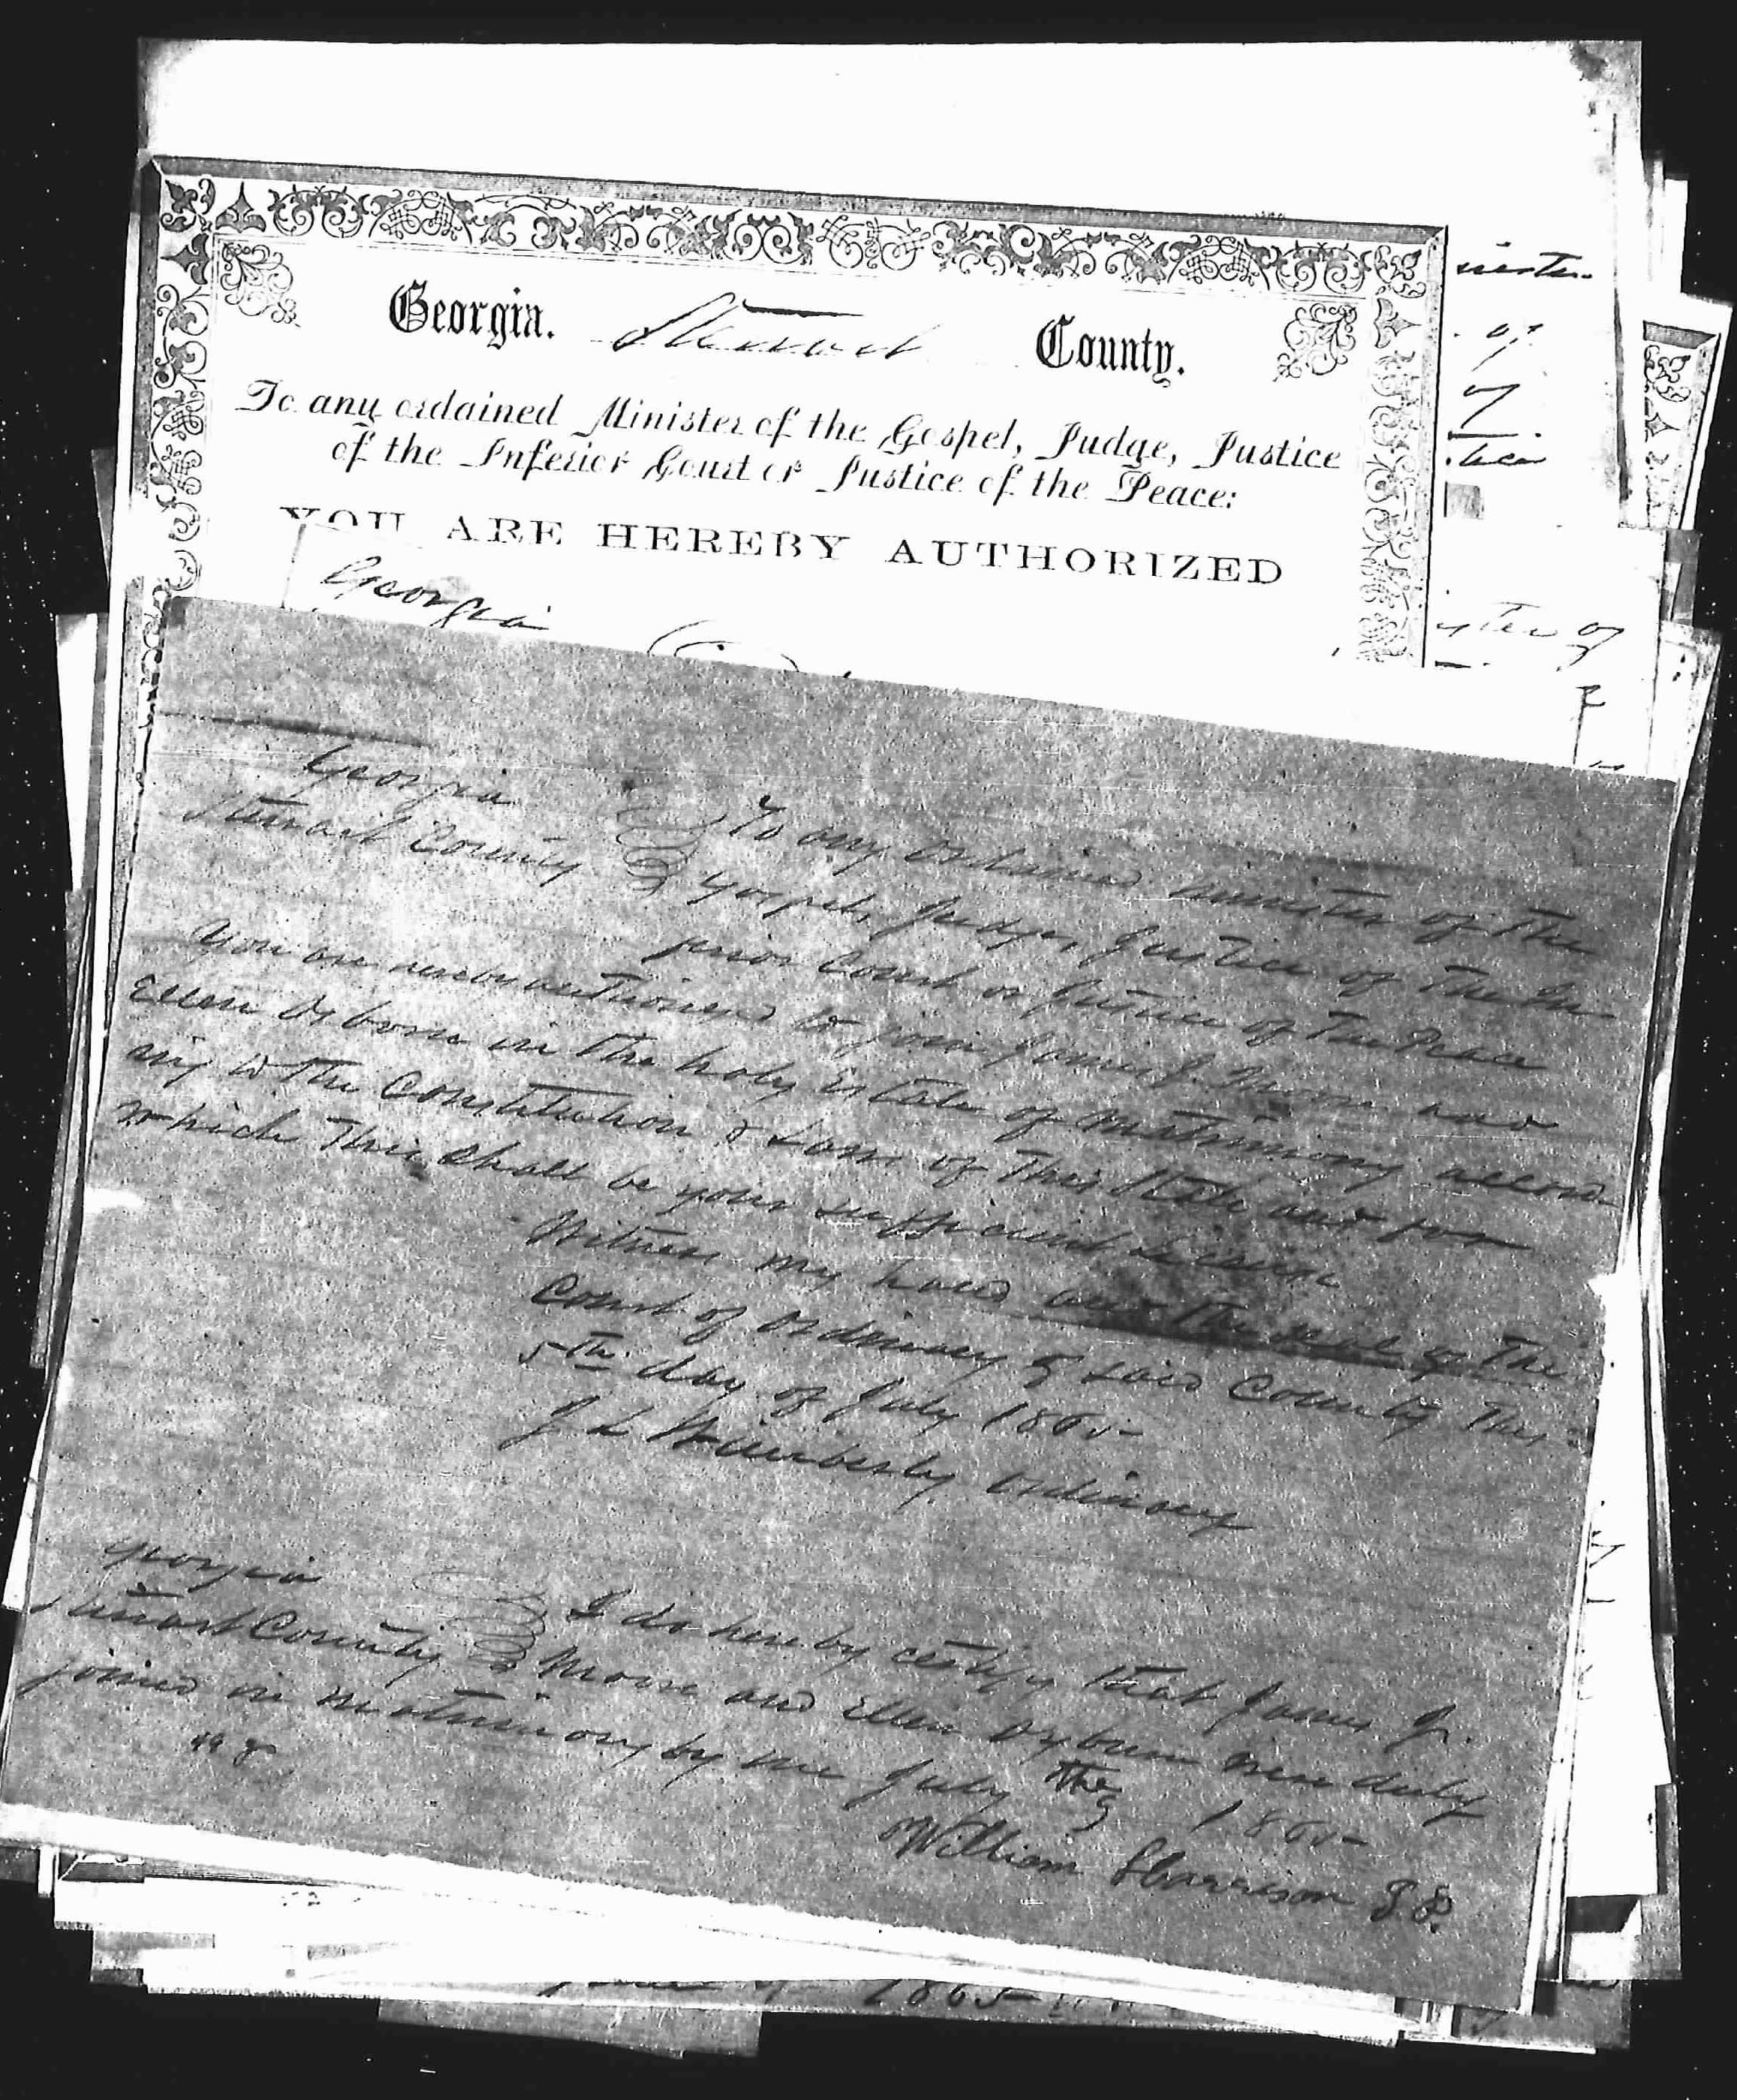 Georgia. Stewart County.
To any ordained Minister of the Gospel, Judge, Justice
of the Inferior Court or Justice of the Peace:
YOU ARE HEREBY AUTHORIZED
Georgia
Georgia To any ordained minister of the
Stewart County Gospel, Judge, Justice of the In-
ferior Court or Justice of the Peace
You are hereby authorized to join James J. and
Ellen Osborn in the holy estate of matrimony accord-
ing to the Constitution & Laws of this State and for
which this shall be your sufficient License
Witness my hand and the seal of the
Court of Ordinary of said County this
5th day of July 1865
J L Wimberly Ordinary
Georgia I do hereby certify that James J.
Stewart County and Ellen Osburn were duly
joined in matrimony by me July the 1865
William J.P.
1865